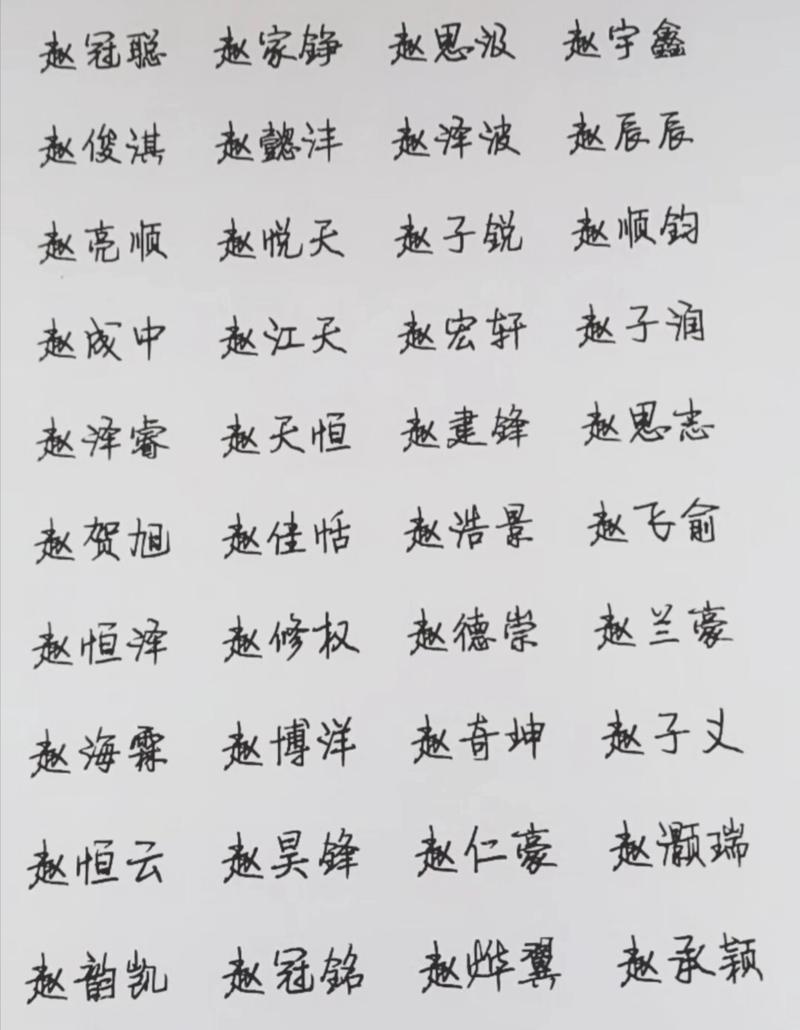 赵冠聪 赵家铮 赵思汲 赵宇鑫
赵俊淇 赵懿沣 赵泽波 赵辰辰
赵亮顺 赵悦天 赵子锐 赵顺钧
赵成中 赵江天 赵宏轩 赵子润
赵泽睿 赵天恒 赵建锋 赵思志
赵贺旭 赵佳恬 赵浩景 赵飞俞
赵恒泽 赵修权 赵德崇 赵兰豪
赵海霖 赵博洋 赵奇坤 赵子义
赵恒云 赵昊锋 赵仁豪 赵灏瑞
赵韵凯 赵冠铭 赵烨翼 赵承颖